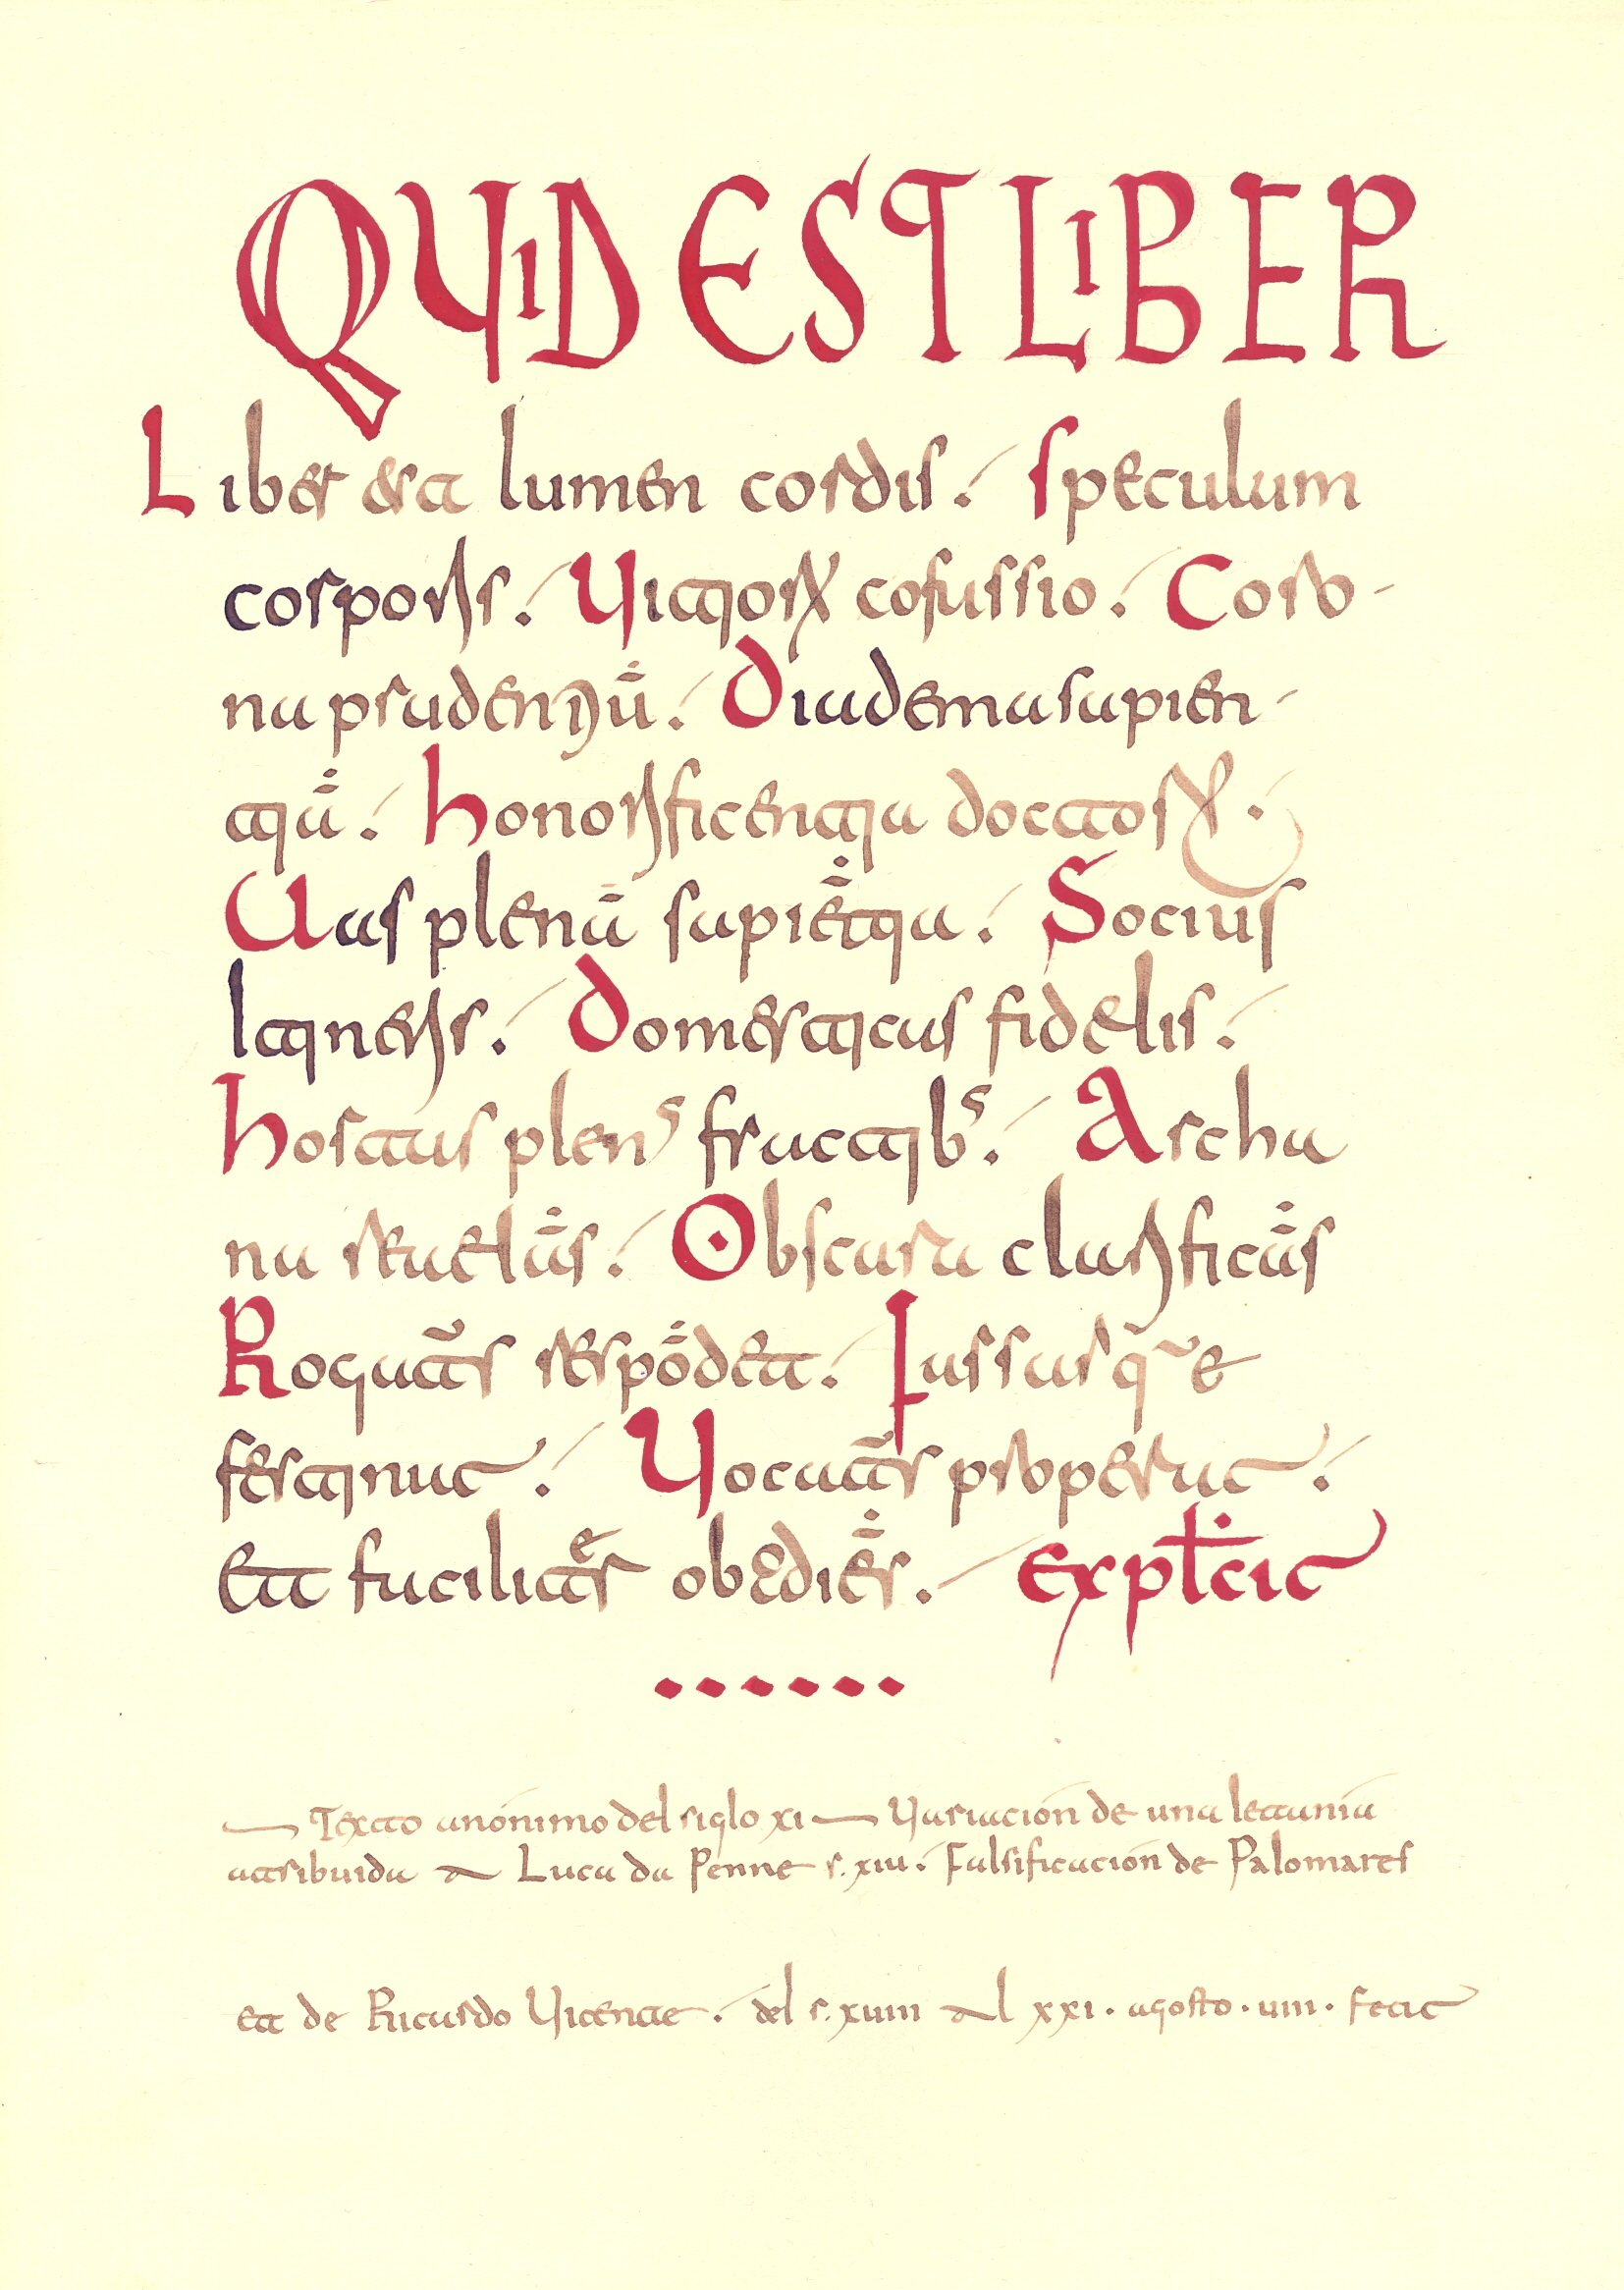 QUID EST LIBER
Liber est lumen cordis. Speculum
corporis. Vitiorꝝ cōfussio. Coro-
na prudentiū. Diadema sapien-
tiū. Honorificentia doctorꝝ.
Uas plenū sapiētia. Socius
Itineris. Domesticus fidelis.
Hortus plenꝰ fructibꝰ. Archa
na reuelās. Obscura clarificās
Rogat᷒s respōdet. Iussusq᷒e
festinat. Vocat᷒s properat.
Et facilitᵉr obediēs. explcit
— Texto anónimo del siglo xi — Variación de una letanía
atribuida a Luca da Penne s. xiu. Falsificación de Palomares
et de Ricardo Vicente. del s. xuiii al xxi. agosto. uiii. fecit